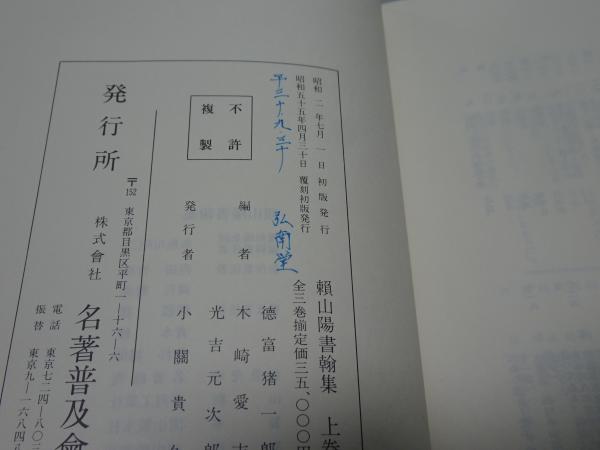 昭和 二年七月 一 日 初版発行
昭和五十五年四月三十日 覆刻初版発行
平三十、九、三十 弘南堂
頼山陽書翰集 上巻
全三巻揃定価三五、〇〇〇円
不許
複製
編者
德富猪一郎
木崎愛吉
光吉元次郎
発行者 小關貴
発行所
〒152 東京都目黒区平町一ー十六ー六
株式會社 名著普及會
電話 東京七二四ー八〇
振替 東京九ー一六八四